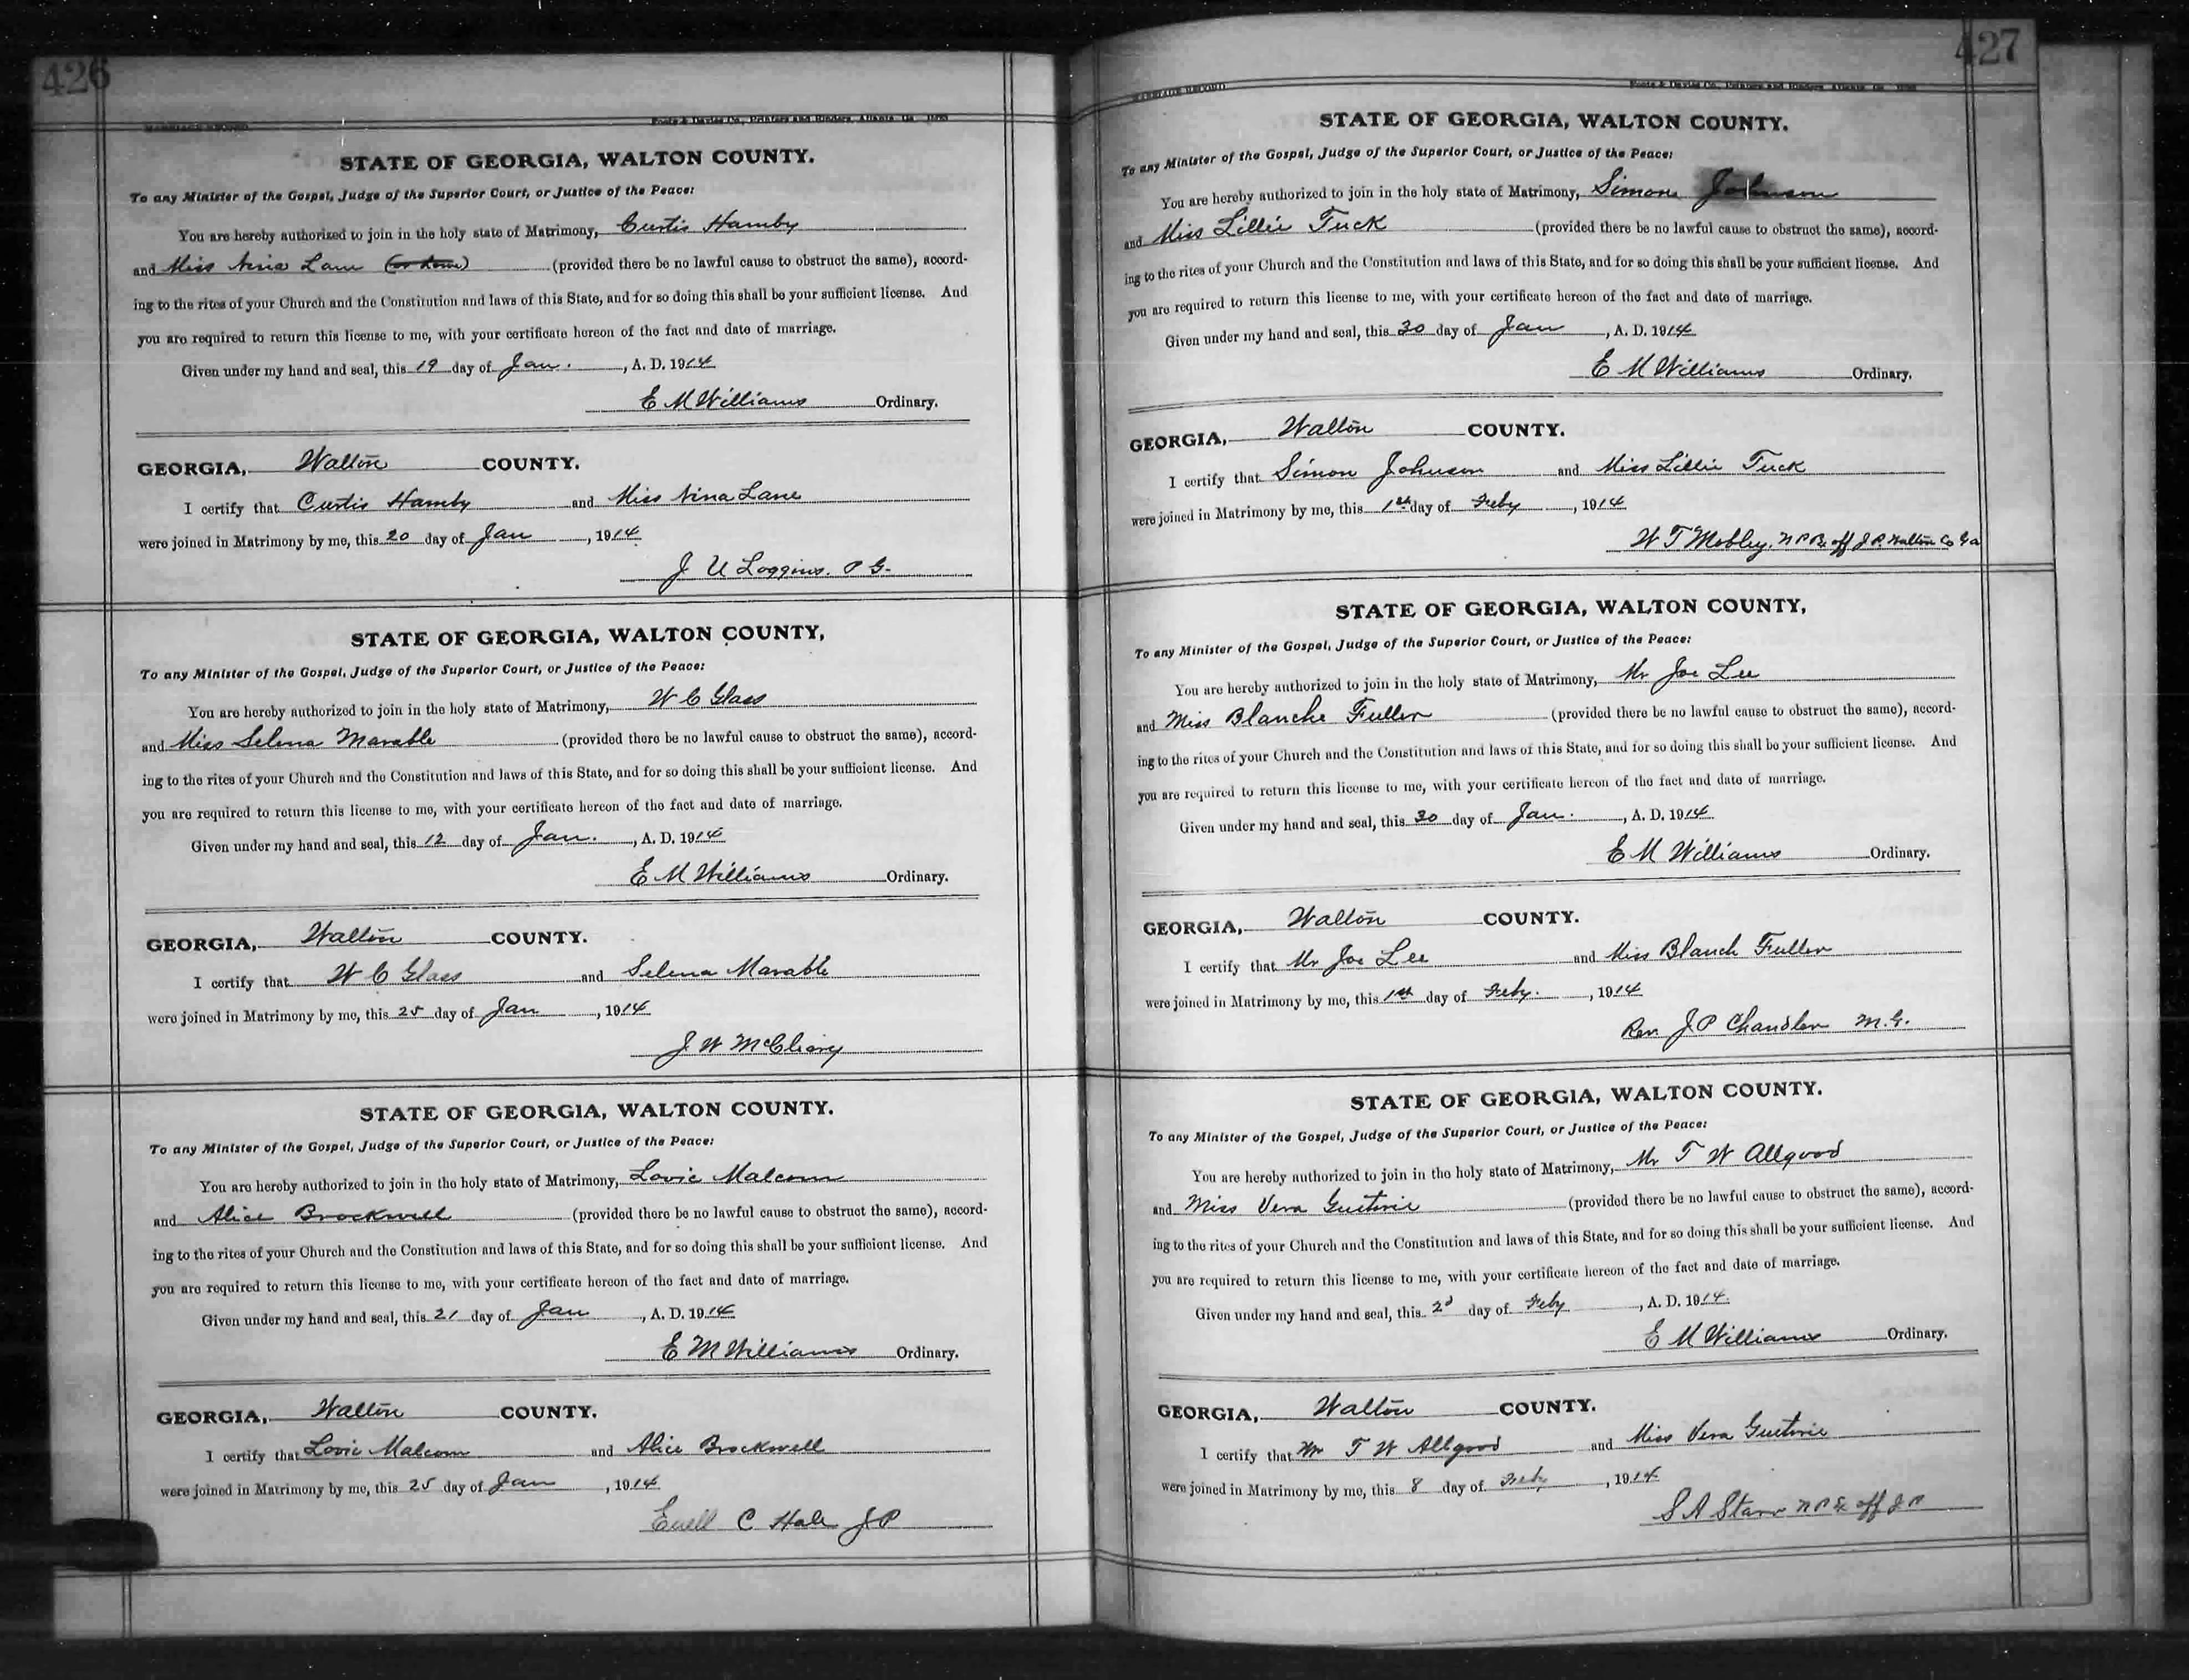 426
MARRIAGE RECORD
Foote & Davies Co., Printers and Binders, Atlanta, Ga.
STATE OF GEORGIA, WALTON COUNTY.
To any Minister of the Gospel, Judge of the Superior Court, or Justice of the Peace:
You are hereby authorized to join in the holy state of Matrimony, Curtis Hamby
and Miss Nina Lane (provided there be no lawful cause to obstruct the same), accord-
ing to the rites of your Church and the Constitution and laws of this State, and for so doing this shall be your sufficient license. And
you are required to return this license to me, with your certificate hereon of the fact and date of marriage.
Given under my hand and seal, this 19 day of Jan. , A. D. 1914
E M Williams Ordinary.
GEORGIA, Walton COUNTY.
I certify that Curtis Hamby and Miss Nina Lane
were joined in Matrimony by me, this 20 day of Jan , 1914
J U Loggins.
STATE OF GEORGIA, WALTON COUNTY,
To any Minister of the Gospel, Judge of the Superior Court, or Justice of the Peace:
You are hereby authorized to join in the holy state of Matrimony, W C Glass
and Miss Selena Marable (provided there be no lawful cause to obstruct the same), accord-
ing to the rites of your Church and the Constitution and laws of this State, and for so doing this shall be your sufficient license. And
you are required to return this license to me, with your certificate hereon of the fact and date of marriage.
Given under my hand and seal, this 12 day of Jan. , A. D. 1914
E M Williams Ordinary.
GEORGIA, Walton COUNTY.
I certify that W C Glass and Selena Marable
were joined in Matrimony by me, this 25 day of Jan , 1914
J W McCleary
STATE OF GEORGIA, WALTON COUNTY.
To any Minister of the Gospel, Judge of the Superior Court, or Justice of the Peace:
You are hereby authorized to join in the holy state of Matrimony, Lovic Malcom
and Alice Brockwell (provided there be no lawful cause to obstruct the same), accord-
ing to the rites of your Church and the Constitution and laws of this State, and for so doing this shall be your sufficient license. And
you are required to return this license to me, with your certificate hereon of the fact and date of marriage.
Given under my hand and seal, this 21 day of Jan , A. D. 1914
E M Williams Ordinary.
GEORGIA, Walton COUNTY.
I certify that Lovic Malcom and Alice Brockwell
were joined in Matrimony by me, this 25 day of Jan , 1914
C Hale J P
427
MARRIAGE RECORD
Foote & Davies Co., Printers and Binders, Atlanta, Ga.
STATE OF GEORGIA, WALTON COUNTY.
To any Minister of the Gospel, Judge of the Superior Court, or Justice of the Peace:
You are hereby authorized to join in the holy state of Matrimony, Simon Johnson
and Miss Lillie Tuck (provided there be no lawful cause to obstruct the same), accord-
ing to the rites of your Church and the Constitution and laws of this State, and for so doing this shall be your sufficient license. And
you are required to return this license to me, with your certificate hereon of the fact and date of marriage.
Given under my hand and seal, this 30 day of Jan , A. D. 1914
E M Williams Ordinary.
GEORGIA, Walton COUNTY.
I certify that Simon Johnson and Miss Lillie Tuck
were joined in Matrimony by me, this 1st day of Feby , 1914
W T Mobley, N P & off J P, Walton Co Ga
STATE OF GEORGIA, WALTON COUNTY,
To any Minister of the Gospel, Judge of the Superior Court, or Justice of the Peace:
You are hereby authorized to join in the holy state of Matrimony, Mr Joe Lee
and Miss Blanche Fuller (provided there be no lawful cause to obstruct the same), accord-
ing to the rites of your Church and the Constitution and laws of this State, and for so doing this shall be your sufficient license. And
you are required to return this license to me, with your certificate hereon of the fact and date of marriage.
Given under my hand and seal, this 30 day of Jan. , A. D. 1914
E M Williams Ordinary.
GEORGIA, Walton COUNTY.
I certify that Mr Joe Lee and Miss Blanch Fuller
were joined in Matrimony by me, this 1st day of Feby. , 1914
Rev J P Chandler M. G.
STATE OF GEORGIA, WALTON COUNTY.
To any Minister of the Gospel, Judge of the Superior Court, or Justice of the Peace:
You are hereby authorized to join in the holy state of Matrimony, Mr T W Allgood
and Miss Vera Guthrie (provided there be no lawful cause to obstruct the same), accord-
ing to the rites of your Church and the Constitution and laws of this State, and for so doing this shall be your sufficient license. And
you are required to return this license to me, with your certificate hereon of the fact and date of marriage.
Given under my hand and seal, this 2d day of Feby , A. D. 1914
E M Williams Ordinary.
GEORGIA, Walton COUNTY.
I certify that Mr T W Allgood and Miss Vera Guthrie
were joined in Matrimony by me, this 8 day of Feby , 1914
S A Starr N P & off J P